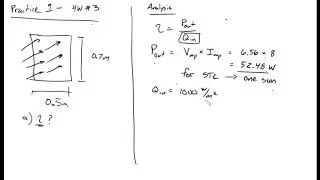 Practice 1 - HW #3
0.7m
0.5m
a) η ?
Analysis
η = Pout / Qin
Pout = Vmp × Imp = 6.56 × 8
= 52.48 W
for STC → one sun
Qin = 1000 W/m²